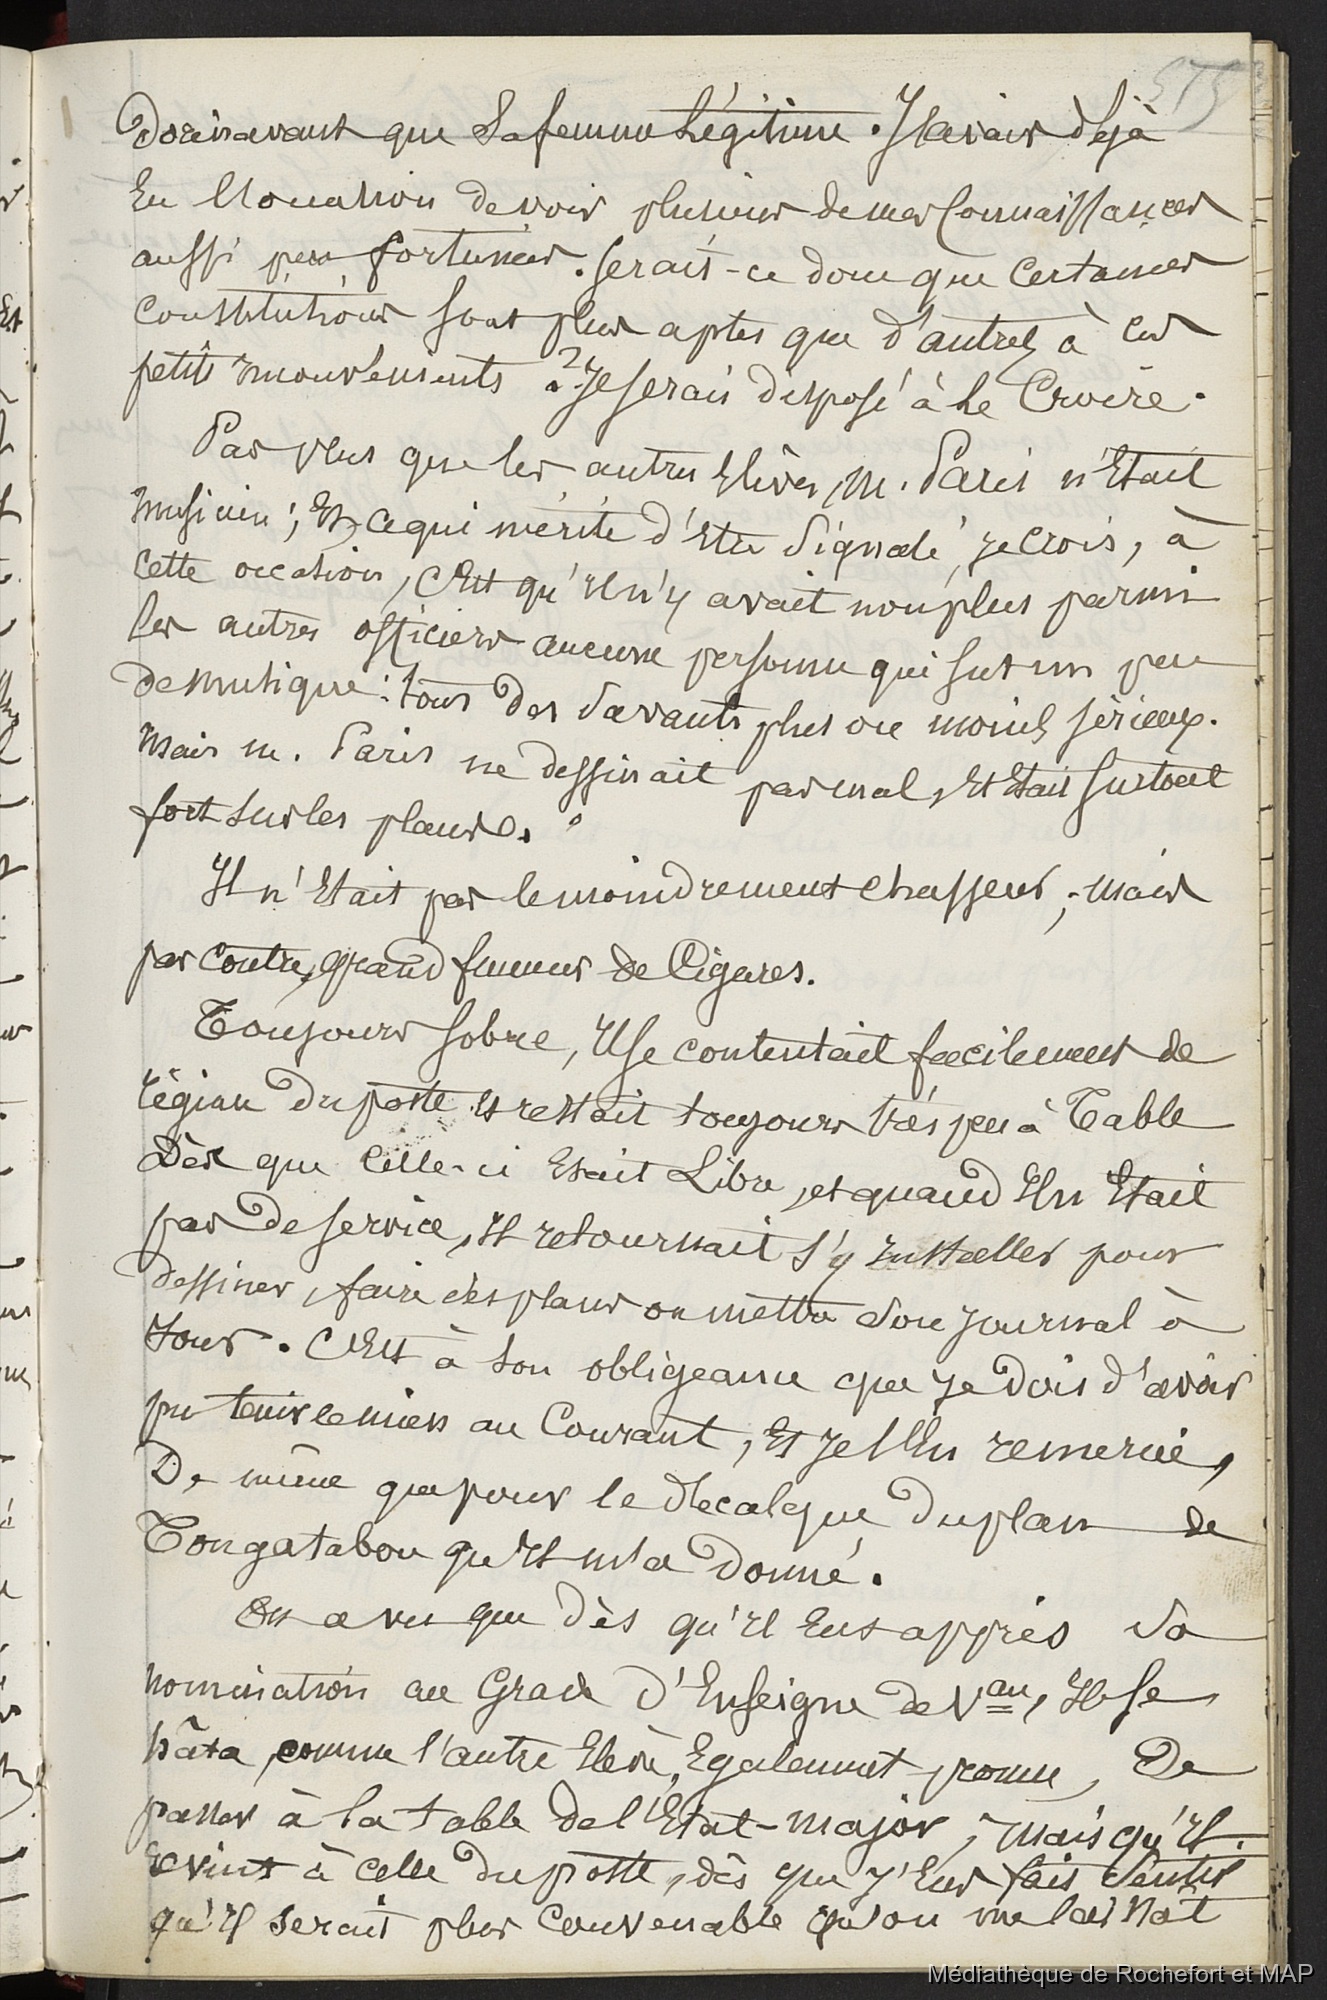 575
Dorénavant que Sa femme Légitime. J'avais déjà
Eu l'Occasion de voir plusieurs de mes Connaissances
aussi peu fortunées. Serait-ce donc que Certaines
Constitutions sont plus aptes que d'autres à ces
petits mouvements ? Je serais disposé à le Croire.
Pas plus que les autres Elèves, M. Paris n'Etait
musicien ; Et ce qui mérite d'Etre Signalé, je crois, à
cette occasion, C'Est qu'Il n'y avait non plus parmi
les autres officiers aucune personne qui sut un peu
de musique : tous des Savants plus ou moins sérieux.
Mais M. Paris ne dessinait pas mal, Et Etait surtout
fort sur les plans.
Il n'Etait pas le moindrement chasseur ; mais
par Contre, grand fumeur de Cigares.
Toujours sobre, Il se contentait facilement de
régime du poste Et restait toujours très peu à Table
Dès que celle-ci Etait Libre, et quand Il n'Etait
pas De service, Il retournait s'y Installer pour
dessiner, faire des plans ou mettre Son journal à
Jour. C'Est à son obligeance que je Dois d'avoir
pu tenir le mien au Courant, Et je l'En remercie,
De même que pour le décalque Du plan de
Tongatabou qu'Il m'a Donné.
On a vu que Dès qu'Il Eut appris Sa
nomination au Grade d'Enseigne de Vau, Il se
hâta, comme l'autre Elève, Egalement promu, De
passer à la table de l'Etat-Major, mais qu'Il
revint à celle du poste, dès que j'Eus fait Sentir
qu'Il serait plus Convenable qu'on me laissât
Médiathèque de Rochefort et MAP